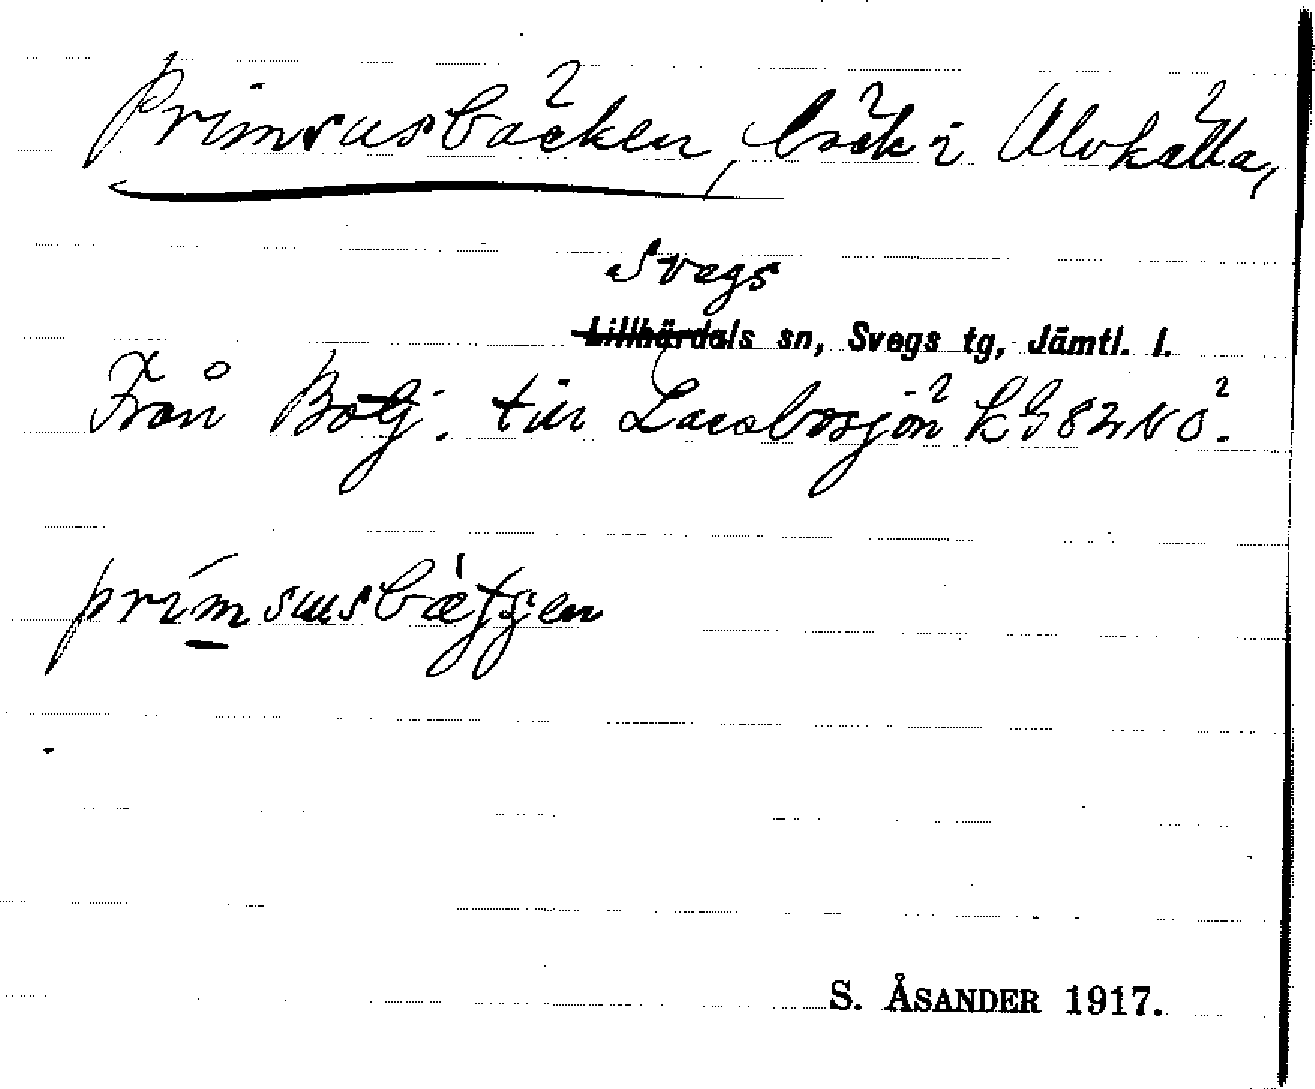 Primsusbäcken, bäck i Älvkälla,
Svegs
Lillhärdals sn, Svegs tg, Jämtl. l.
Från till Lacobosjön KG 82 NÖ.
prímsusbæ̀tʃen
S. ÅSANDER 1917.